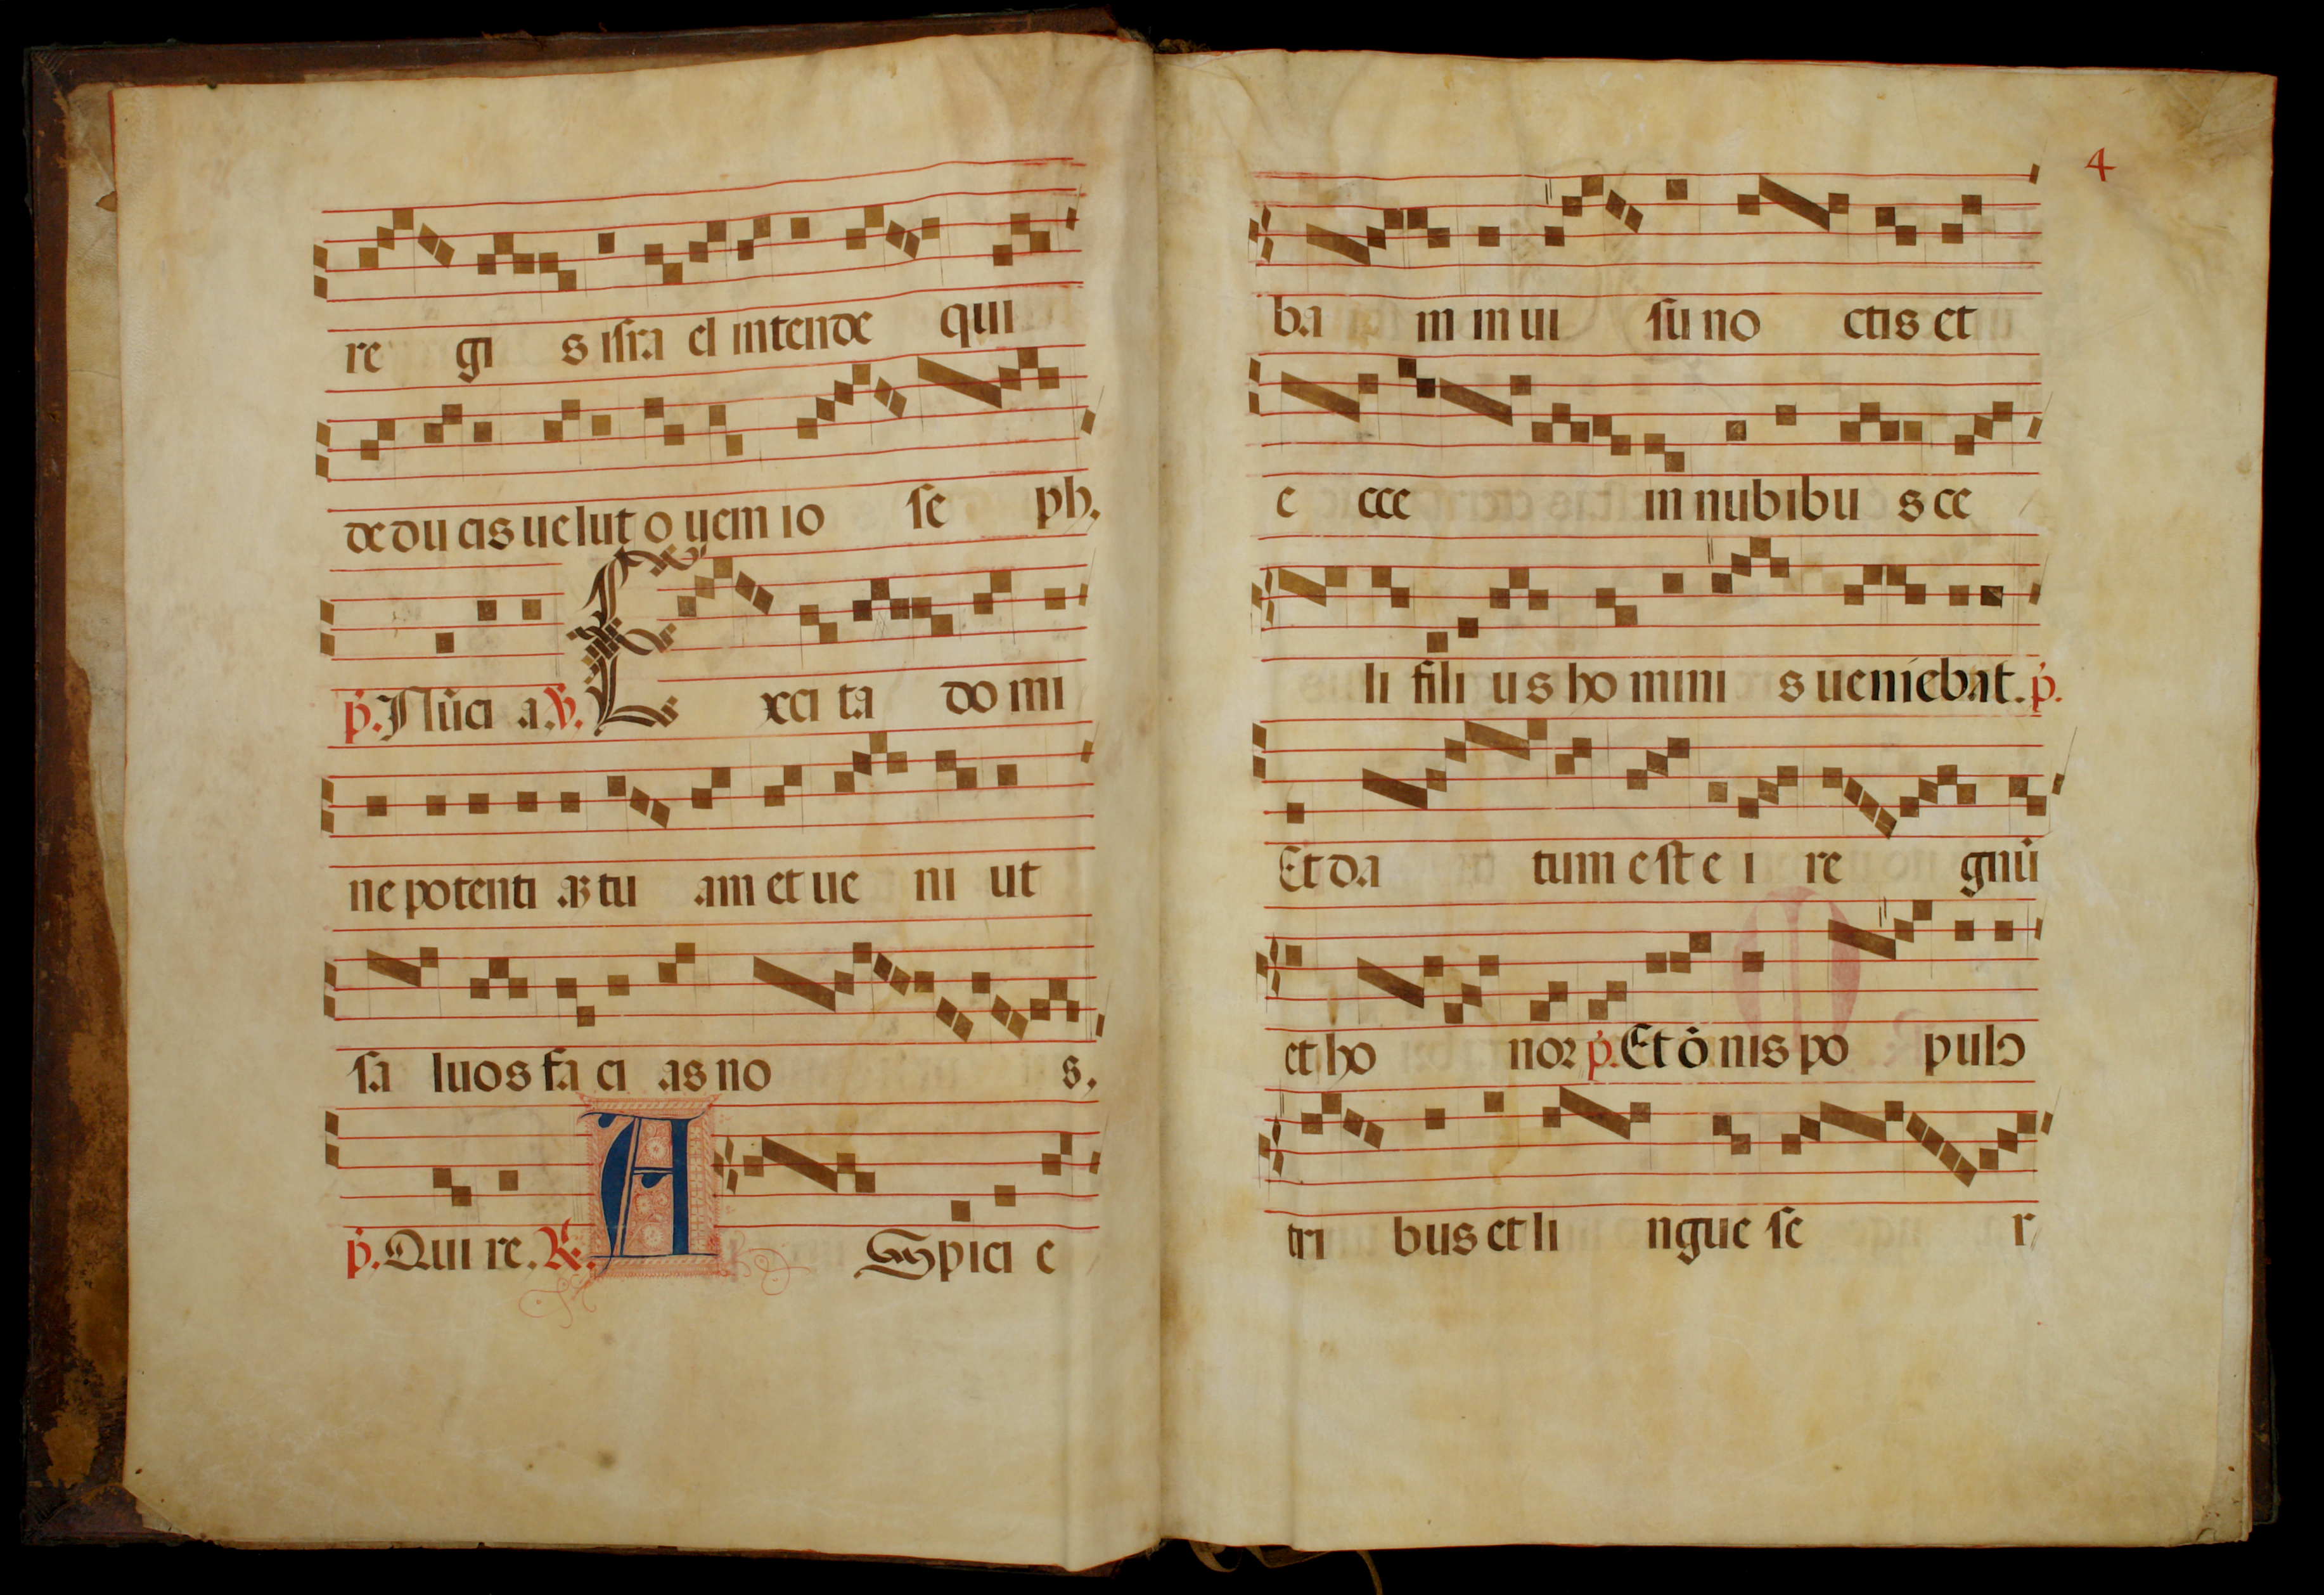 re gi s iſra el intende qui
de du cis ue lut o uem io ſe ph.
p̕. Nūci a. ℣. E xci ta do mi
ne potenti aʒ tu am et ue ni ut
ſa luos fa ci as no s.
p̕. Qui re. ℟. A Spici e
4
ba m in ui ſu no ctis et
e cce in nubibu s ce
li fili us ho mini s ueniebat. p̕.
Et da tum eſt e i re gnū
et ho noꝛ p̕. Et ōnis po pulꝰ
tri bus et li ngue ſe r